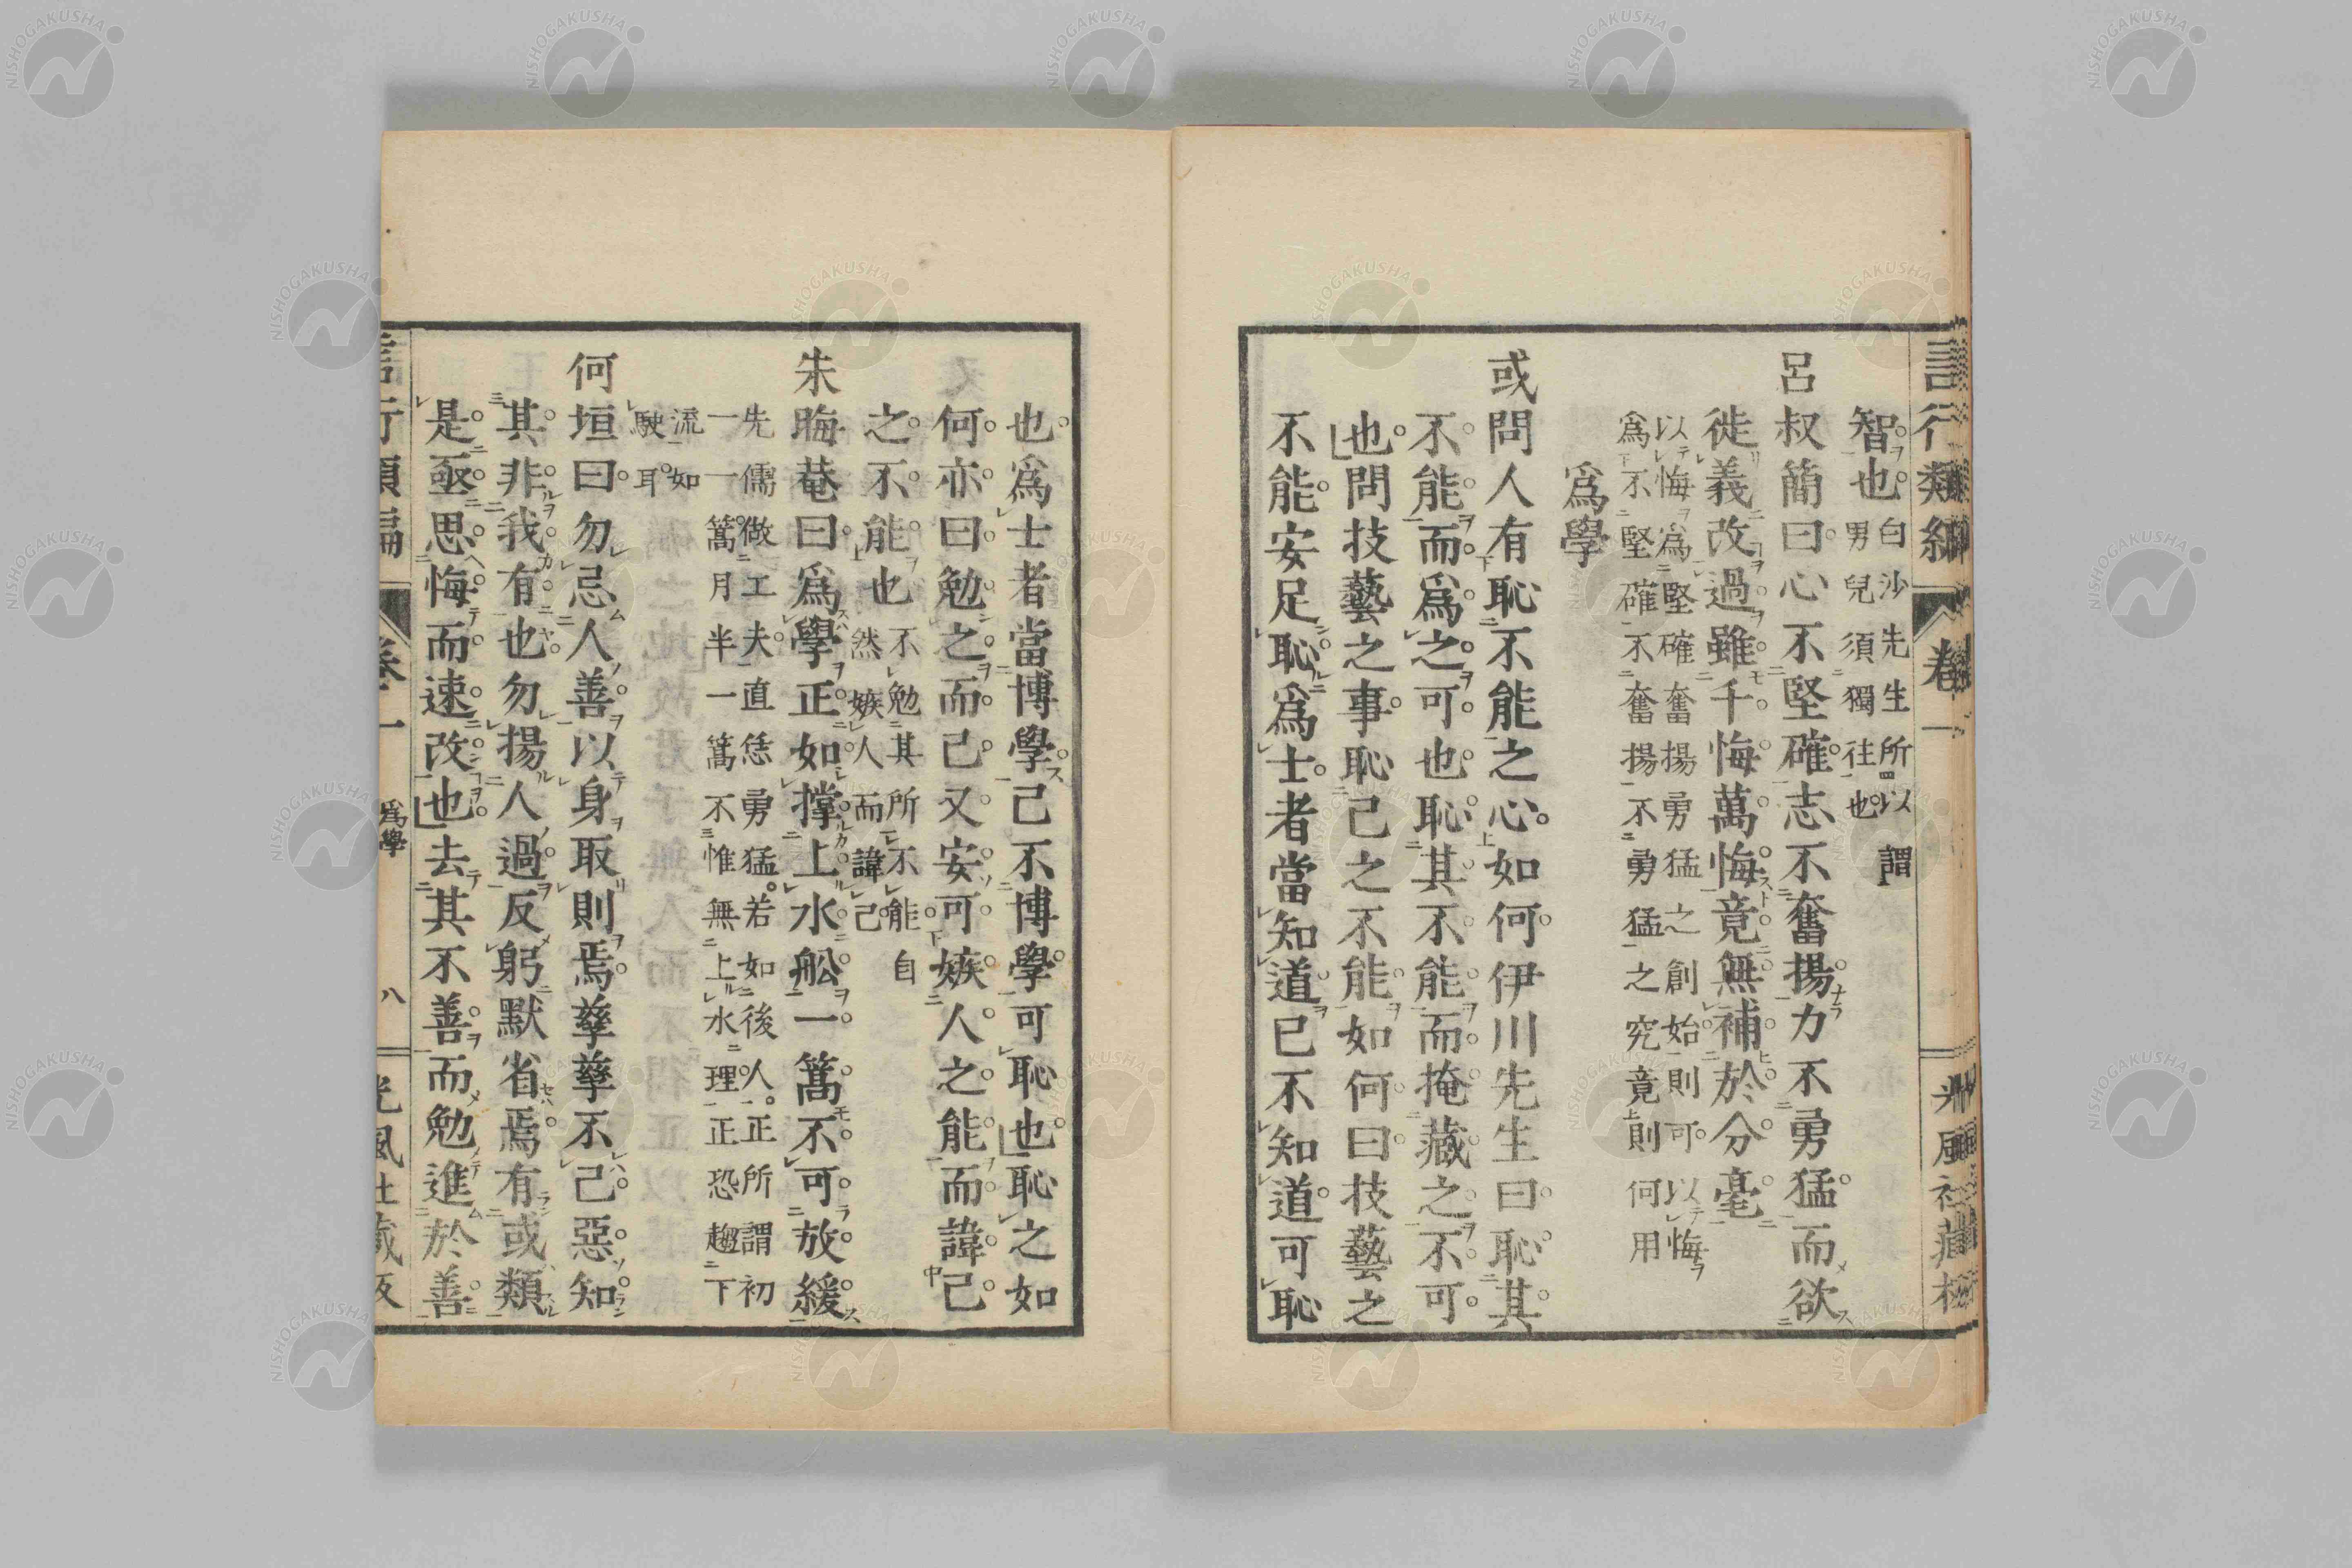 言行類編 卷一
智也白沙先生所以謂
男兒須獨往也
呂叔簡曰心不堅確志不奮揚力不勇猛而欲
徙義改過雖千悔萬悔竟無補於分毫
以悔爲堅確奮揚勇猛之創始則可以悔
爲不堅確不奮揚不勇猛之究竟則何用
爲學
或問人有恥不能之心如何伊川先生曰恥其
不能而爲之可也恥其不能而掩藏之不可
也問技藝之事恥己之不能如何曰技藝之
不能安足恥爲士者當知道已不知道可恥
也爲士者當博學己不博學可恥也恥之如
何亦曰勉之而已又安可嫉人之能而諱己
之不能也不勉其所不能自
然嫉人而諱己
朱晦菴曰爲學正如撐上水舩一篙不可放緩
先儒做工夫直恁勇猛若如後人正所謂初
一一篙月半一篙不惟無上水理正恐趨下
流如
駛耳
何垣曰勿忌人善以身取則焉孳孳不已惡知
其非我有也勿揚人過反躬默省焉有或類
是亟思悔而速改也去其不善而勉進於善
言行類編 卷一 爲學 八 光風社藏板
NISHOGAKUSHA